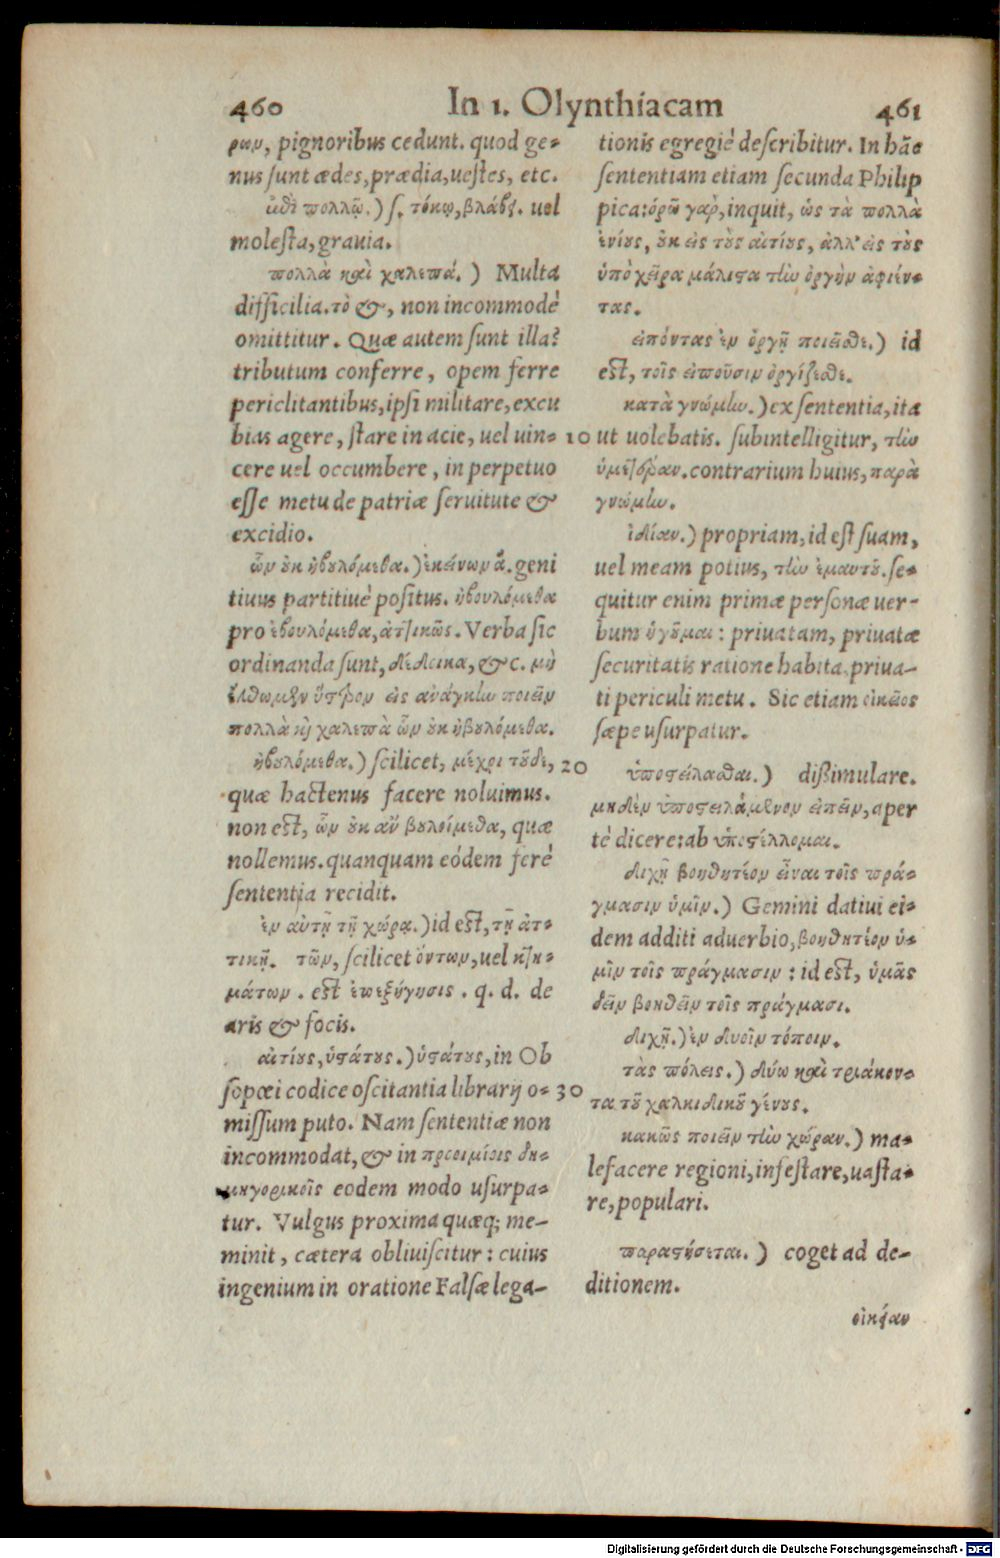 460 In 1. Olynthiacam 461
ρων, pignoribus cedunt. quod ge-
nus sunt ædes, prædia, uestes, etc.
ἐπὶ πολλῷ.) s. τόκῳ, βλάβῃ. uel
molesta, grauia.
πολλὰ καὶ χαλεπά.) Multa
difficilia. τὸ &, non incommodè
omittitur. Quæ autem sunt illa?
tributum conferre, opem ferre
periclitantibus, ipsi militare, excu
bias agere, stare in acie, uel uin-
cere uel occumbere, in perpetuo
esse metu de patriæ seruitute &
excidio.
ὧν οὐκ ἠβουλόμεθα.) ἐκείνων ἃ. geni
tiuus partitiuè positus. ἠβουλόμεθα
pro ἐβουλόμεθα, ἀττικῶς. Verba sic
ordinanda sunt, δέδοικα, &c. μὴ
ἔλθωμεν ὕστερον εἰς ἀνάγκην ποιεῖν
πολλὰ καὶ χαλεπὰ ὧν οὐκ ἠβουλόμεθα.
ἠβουλόμεθα.) scilicet, μέχρι τοῦδε,
quæ hactenus facere noluimus.
non est, ὧν οὐκ ἂν βουλοίμεθα, quæ
nollemus. quanquam eódem ferè
sententia recidit.
ἐν αὐτῇ τῇ χώρᾳ.) id est, τῇ ἀτ-
τικῇ. τῶν, scilicet ὄντων, uel κτη-
μάτων. est ἐπεξήγησις. q. d. de
aris & focis.
αἰτίους, ὑστάτους.) ὑστάτους, in Ob
sopœi codice oscitantia librarij o-
missum puto. Nam sententiæ non
incommodat, & in προοιμίοις δη-
μηγορικοῖς eodem modo usurpa-
tur. Vulgus proxima quæq; me-
minit, cætera obliuiscitur: cuius
ingenium in oratione Falsæ lega-
tionis egregiè describitur. In hãc
sententiam etiam secunda Philip
pica: ὁρῶ γὰρ, inquit, ὡς τὰ πολλὰ
ἐνίους, οὐκ εἰς τοὺς αἰτίους, ἀλλ' εἰς τοὺς
ὑπὸ χεῖρα μάλιστα τὴν ὀργὴν ἀφιέν-
τας.
εἰπόντας ἐν ὀργῇ ποιεῖσθε.) id
est, τοῖς εἰποῦσιν ὀργίζεσθε.
κατὰ γνώμην.) ex sententia, ita
10 ut uolebatis. subintelligitur, τὴν
ὑμετέραν. contrarium huius, παρὰ
γνώμην.
ἰδίαν.) propriam, id est suam,
uel meam potius, τὴν ἐμαυτοῦ. se-
quitur enim primæ personæ uer-
bum ἡγοῦμαι: priuatam, priuatæ
securitatis ratione habita. priua-
ti periculi metu. Sic etiam οἰκεῖος
sæpe usurpatur.
20 ὑποστείλασθαι.) dißimulare.
μηδὲν ὑποστειλάμενον εἰπεῖν, aper
tè dicere: ab ὑποστέλλομαι.
διχῇ βοηθητέον εἶναι τοῖς πρά-
γμασιν ὑμῖν.) Gemini datiui ei-
dem additi aduerbio, βοηθητέον ὑ-
μῖν τοῖς πράγμασιν: id est, ὑμᾶς
δεῖν βοηθεῖν τοῖς πράγμασι.
διχῇ.) ἐν δυοῖν τόποιν.
τὰς πόλεις.) δύω καὶ τριάκον-
30 τα τοῦ χαλκιδικοῦ γένους.
κακῶς ποιεῖν τὴν χώραν.) ma-
lefacere regioni, infestare, uasta-
re, populari.
παραστήσεται.) coget ad de-
ditionem.
οἰκείαν
Digitalisierung gefördert durch die Deutsche Forschungsgemeinschaft - DFG